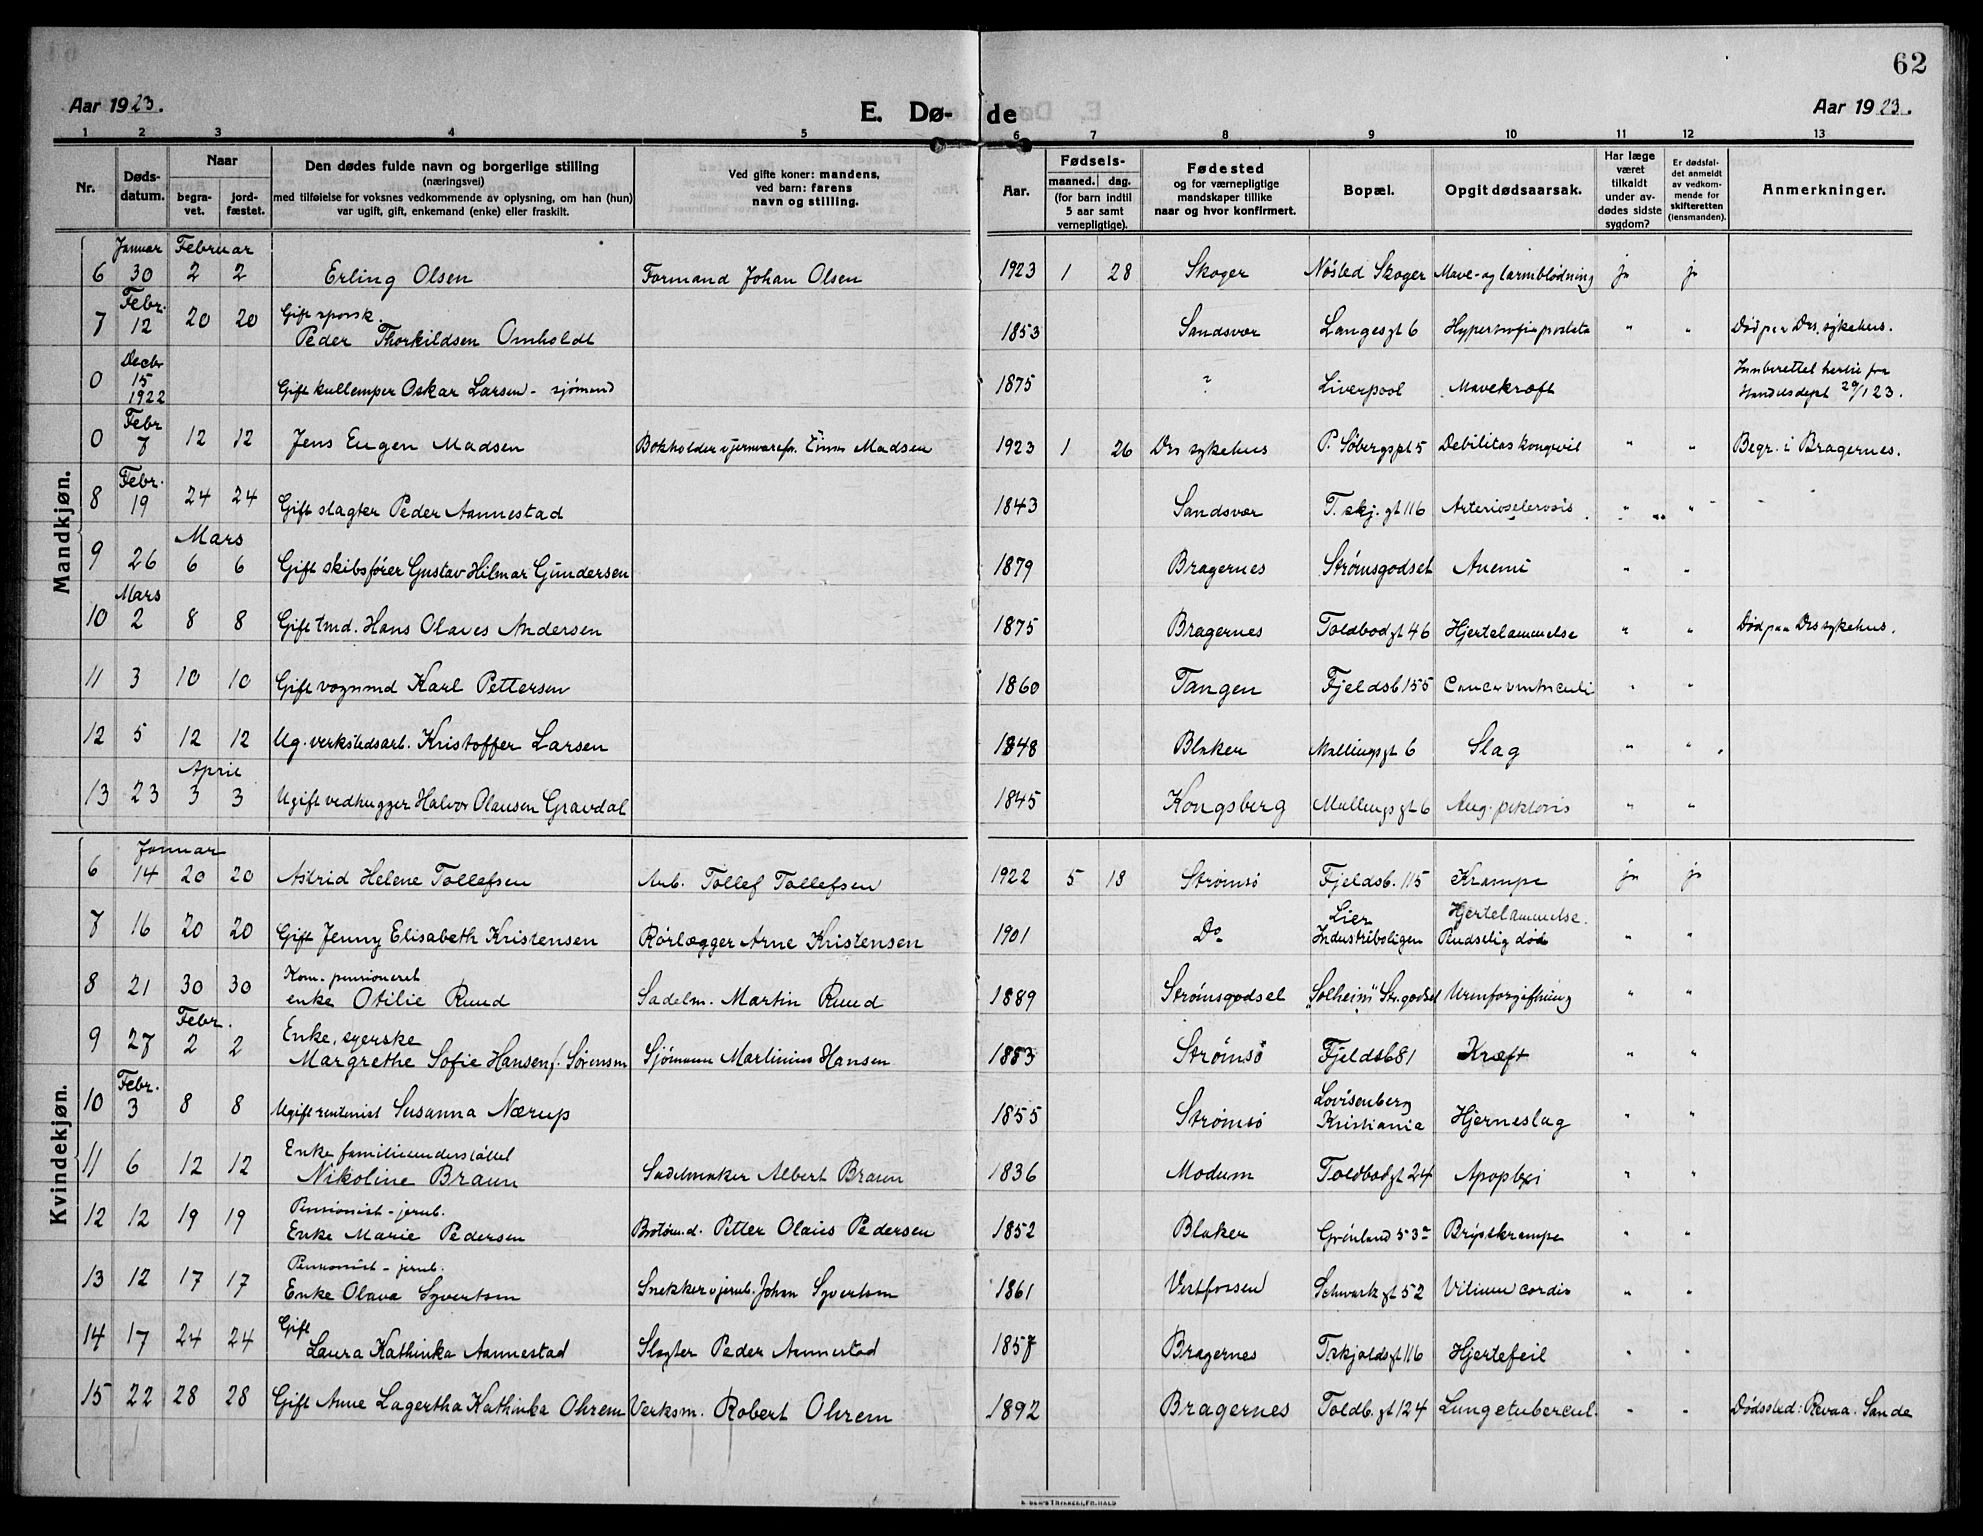 62
Aar 1923.
E. Dø- de
Aar 1923.
1 2 3 4 5 6 7 8 9 10 11 12 13
Nr.
Døds-datum.
Naar
begra-vet.
jord-fæstet.
Den dødes fulde navn og borgerlige stilling
(næringsvei)
med tilføielse for voksnes vedkommende av oplysning, om han (hun)
var ugift, gift, enkemand (enke) eller fraskilt.
Ved gifte koner: mandens,
ved barn: farens
navn og stilling.
Aar.
Fødsels-
maaned. dag.
(for barn indtil
5 aar samt
vernepligtige).
Fødested
og for værnepligtige
mandskaper tillike
naar og hvor konfirmert.
Bopæl.
Opgit dødsaarsak.
Har læge
været
tilkaldt
under av-
dødes sidste
sygdom?
Er dødsfal-
det anmeldt
av vedkom-
mende for
skifteretten
(lensmanden).
Anmerkninger.
Mandkjøn.
Januar Februar
6 30 2 2 Erling Olsen Formand Johan Olsen 1923 1 28 Skoger Nøsted Skoger Mave- og tarmblødning ja ja
Febr.
7 12 20 20 Gift sporsk. Peder Thorkildsen Omholdt 1853 Sandsvær Langesgt 6 Hypertrofia prostata " " Død paa Drs. sykehus.
Decbr
0 15 1922 Gift kullemper Oskar Larsen - sjømand 1875 ? Liverpool Mavekræft Innberettet hertil fra Handelsdept 29/1 23.
Febr
0 7 12 12 Jens Eugen Madsen Bokholder v jernvarefor. Einar Madsen 1923 1 26 Drs sykehus P. Søbergspt 5 Debilitas kongenil " " Begr. i Bragernes.
Febr.
8 19 24 24 Gift slagter Peder Aannestad 1843 Sandsvær T. skj. gt 116 Arteriosclerosis " "
Mars
9 26 6 6 Gift skibsfører Gustav Hilmar Gundersen 1879 Bragernes Strømsgodset Anemi " "
Mars
10 2 8 8 Gift tmd. Hans Olaves Andersen 1875 Bragernes Toldbodgt 46 Hjertelammelse " " Død paa Drs sykehus.
11 3 10 10 Gift vognmd Karl Pettersen 1860 Tangen Fjeldsb 155 Cancer ventriculi " "
12 5 12 12 Ug. verkstedsarb. Kristoffer Larsen 1848 Blaker Mallingsgt 6 Slag " "
April
13 23 3 3 Ugift vedhugger Halvor Olausen Gravdal 1845 Kongsberg Mallingsgt 6 Ang. pektoris " "
Kvindekjøn.
Januar
6 14 20 20 Astrid Helene Tollefsen Arb. Tollef Tollefsen 1922 5 18 Strømsø Fjeldsb. 115 Krampe ja ja
7 16 20 20 Gift Jenny Elisabeth Kristensen Rørlægger Arne Kristensen 1901 Do Lier Industriboligen Hjertelammelse. Pludselig død " "
8 21 30 30 Kom. pensioneret enke Otilie Ruud Sadelm. Martin Ruud 1889 Strømsgodset "Solheim" Str.godset Urinforgiftning " "
Febr.
9 27 2 2 Enke, eyerske Margrethe Sofie Hansen f. Sørensen Sjømann Martinius Hansen 1853 Strømsø Fjeldsb 81 Kræft " "
Febr.
10 3 8 8 Ugift rentenist Susanna Nærup 1855 Strømsø Lovisenberg Kristiania Hjerneslag " "
11 6 12 12 Enke familieunderstøttet Nikoline Braun Sadelmaker Albert Braun 1836 Modum Toldbodgt 24 Apoplexi " "
12 12 19 19 Pensionist - jernb. Enke Marie Pedersen Brotømd. Petter Olaus Pedersen 1852 Blaker Grønland 53a Brystkrampe " "
13 12 17 17 Pensionist - jernb. Enke Olava Syvertsen Snekker v jernb. Johan Syvertsen 1861 Vestfossen Schwartz gt 52 Vitium cordis " "
14 17 24 24 Gift Laura Kathinka Aannestad Slagter Peder Aannestad 1857 Bragernes T.skjoldsgt 116 Hjertefeil " "
15 22 28 28 Gift Anne Lagertha Kathinka Ohrem Verksm. Robert Ohrem 1892 Bragernes Toldb. gt 124 Lungetubercul. " " Dødssted: Revaa. Sande